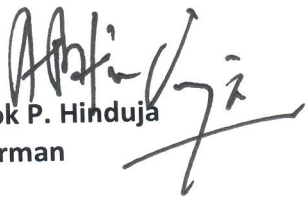 ok P. Hinduja
rman